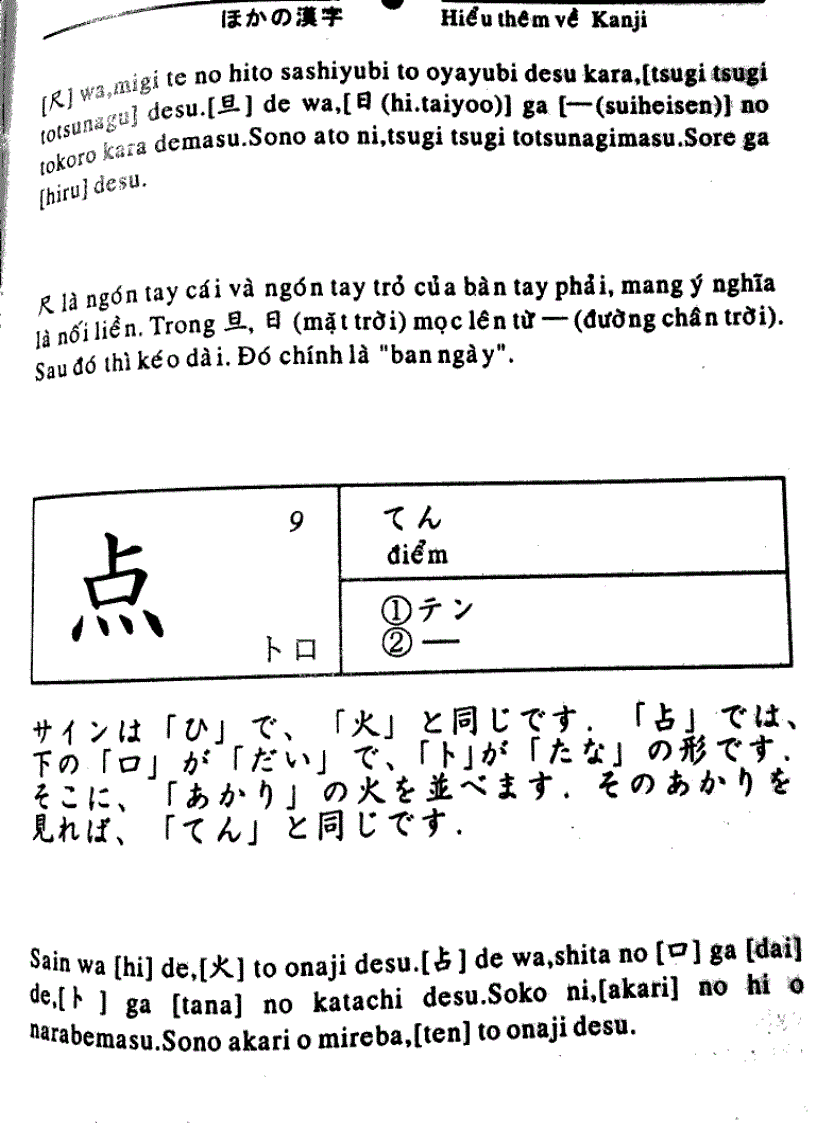 ほかの漢字 Hiểu thêm về Kanji
[尺] wa,migi te no hito sashiyubi to oyayubi desu kara,[tsugi tsugi
totsunagu] desu.[旦] de wa,[日(hi.taiyoo)] ga [一(suiheisen)] no
tokoro kara demasu.Sono ato ni,tsugi tsugi totsunagimasu.Sore ga
[hiru] desu.
尺 là ngón tay cái và ngón tay trỏ của bàn tay phải, mang ý nghĩa
là nối liền. Trong 旦, 日 (mặt trời) mọc lên từ 一 (đường chân trời).
Sau đó thì kéo dài. Đó chính là "ban ngày".
点
9
トロ
てん
điểm
①テン
②ー
サインは「ひ」で、「火」と同じです.「占」では、
下の「口」が「だい」で、「ト」が「たな」の形です.
そこに、「あかり」の火を並べます.そのあかりを
見れば、「てん」と同じです.
Sain wa [hi] de,[火] to onaji desu.[占] de wa,shita no [口] ga [dai]
de,[ト] ga [tana] no katachi desu.Soko ni,[akari] no hi o
narabemasu.Sono akari o mireba,[ten] to onaji desu.